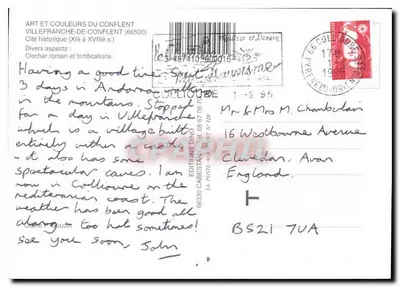 ART ET COULEURS DU CONFLENT
VILLEFRANCHE-DE-CONFLENT (66500)
Cité historique (XIè à XVIIIè s.)
Divers aspects :
Clocher roman et fortifications.
Having a good time. Spent
3 days in Andorra
in the mountains. Stopped
for a day in Villefranche
which is a village built
entirely within a castle
- it also has some
spectacular caves. I am
now in Collioure on the
mediterranean coast. The
weather has been good all
along - too hot sometimes!
See you soon, John
COLLIOURE
1-8.95
EDITIONS DINO
66330 CABESTANY
1995
Mr & Mrs M. Chamberlain
16 Westbourne Avenue
Clevedon, Avon
England.
BS21 7UA